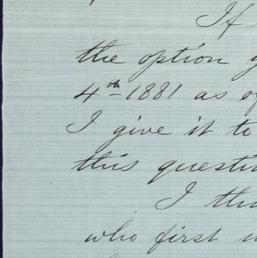 If
the option
4th 1881 as of
I give it to
this questi
I thi
who first